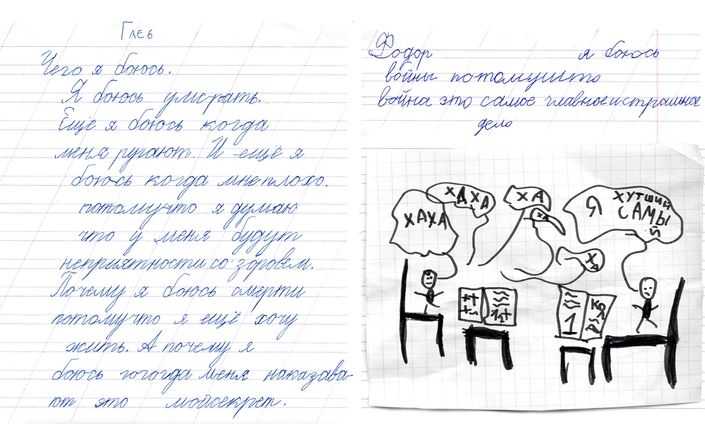 Глеб
Чего я боюсь.
Я боюсь умерать.
Ещё я боюсь когда
меня ругают. И ещё я
боюсь когда мне плохо.
потомучто я думаю
что у меня будут
неприятности со здровем.
Почему я боюсь смерти
потомучто я ещё хочу
жить. А почему я
боюсь когда меня наказыва-
ют это мойсекрет.
Фодор я боюсь
войны потомушто
война это самое главное и страшное
дело
ХАХА
ХАХА
ХА
ХА
Я ХУТШИЙ
САМЫ
Й
1